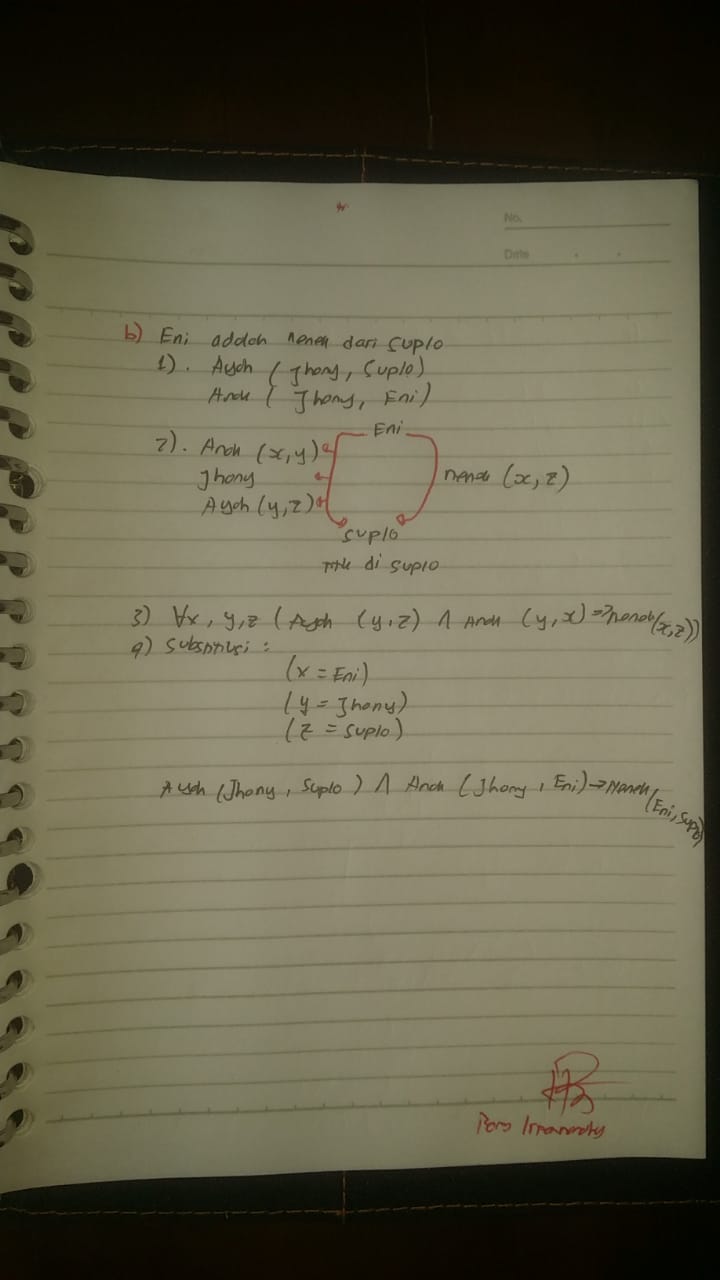 No.
Date
b) Eni adalah nenek dari Suplo
1). Ayah (Jhony, Suplo)
Anak (Jhony, Eni)
Eni
2). Anak (x,y)
Jhony
nenek (x,z)
Ayah (y,z)
Suplo
di Suplo
3) ∀x, y,z (Ayah (y,z) ∧ Anak (y,x) => nenek (x,z))
4) Substitusi :
(x = Eni)
(y = Jhony)
(z = Suplo)
Ayah (Jhony, Suplo) ∧ Anak (Jhony, Eni) → Nenek (Eni, Suplo)